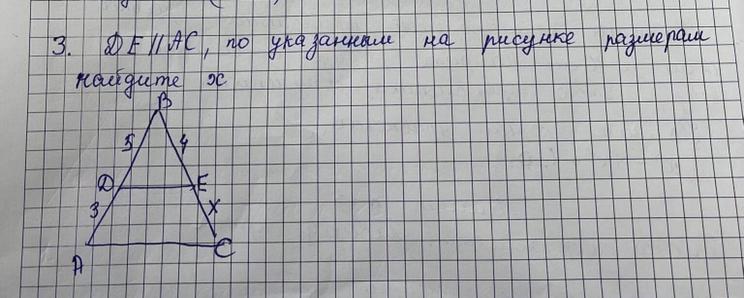 3. DE||AC, по указанным на рисунке размерам
найдите x
B
5 4
D E
3 x
A C